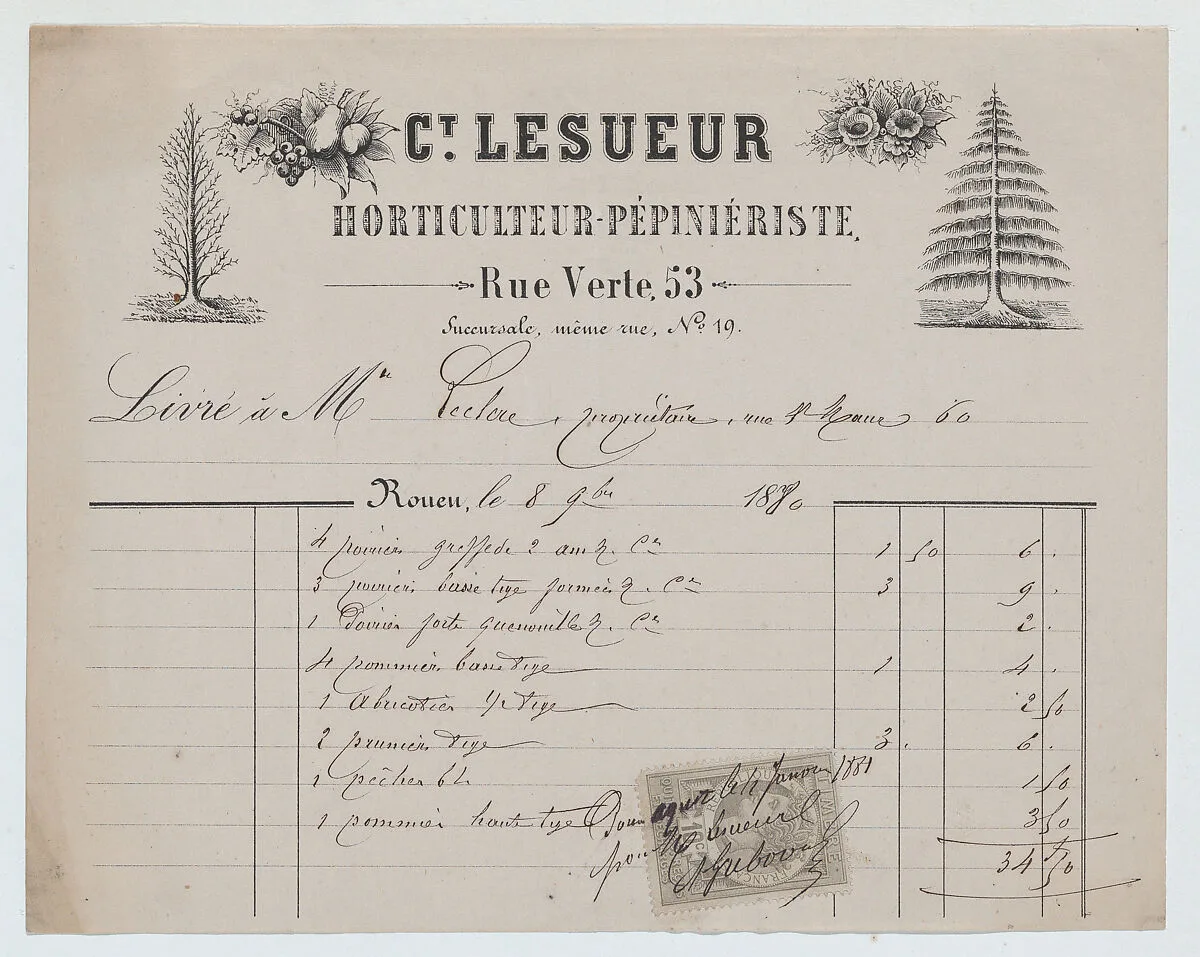 CT. LESUEUR
HORTICULTEUR-PÉPINIÉRISTE.
Rue Verte, 53
Succursale, même rue, No 19.
Livré à Mr Leclerc, propriétaire, rue St Maur 60
Rouen, le 8 9bre 1880
4 poiriers greffe de 2 ans 1 50 6 .
3 poiriers basse tige formés 3 9 .
1 Poirier forte quenouille 2 .
4 pommiers basse tige 1 4 .
1 Abricotier 1/2 tige 2 50
2 pruniers tige 3 . 6 .
1 pêcher 1 50
1 pommier haute tige 3 50
34 50
Pour acquit le Janvier 1881
pour Lesueur
TIMBRE
10c